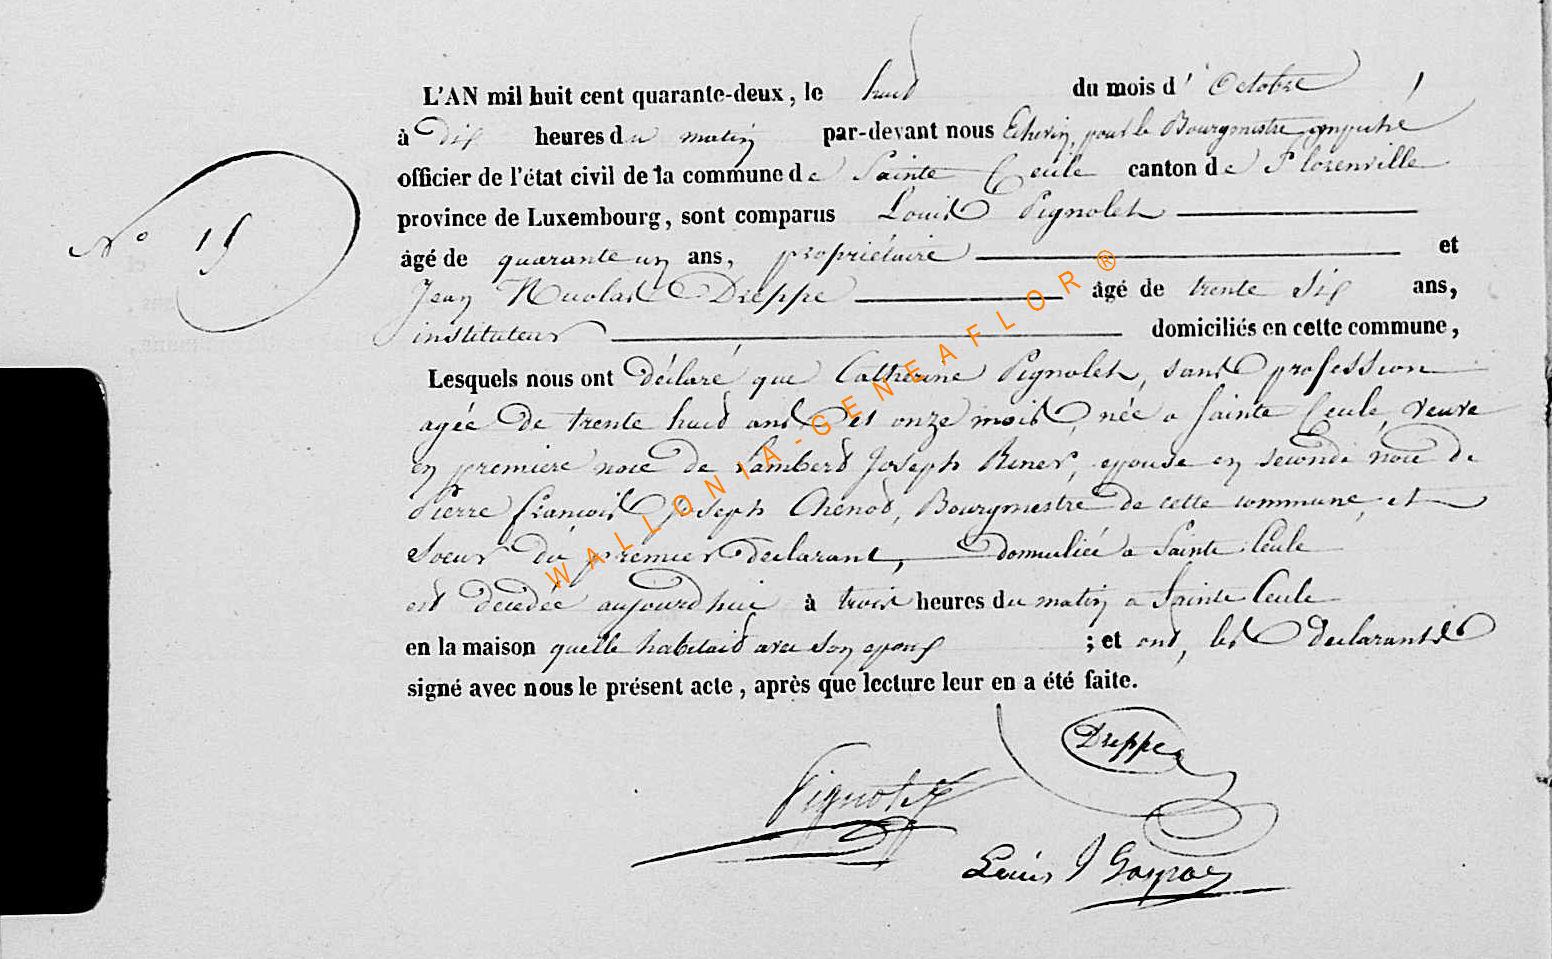 L'AN mil huit cent quarante-deux, le huit du mois d'Octobre
à dix heures du matin par-devant nous Echevin, pour le Bourgmestre empeché
officier de l'état civil de la commune de Sainte Cecile canton de Florenville
province de Luxembourg, sont comparus Louis Pignolet
N° 15
âgé de quarante un ans, propriétaire et
Jean Nicolas Dreppe âgé de trente six ans,
instituteur domiciliés en cette commune,
Lesquels nous ont déclaré que Catherine Pignolet, sans profession
agée de trente huit ans et onze mois, née a Sainte Cecile, veuve
en premiere noce de Lambert Joseph epouse en seconde noce de
Pierre François Joseph Bourgmestre de cette commune, et
Soeur du premier declarant, domiciliée a Sainte Cecile
est decedée aujourd'hui à trois heures du matin a Sainte Cecile
en la maison quelle habitait avec son epoux ; et ont, les declarants
signé avec nous le présent acte, après que lecture leur en a été faite.
Dreppe
Pignolet
Louis J
WALLONIA-GENEAFLOR®